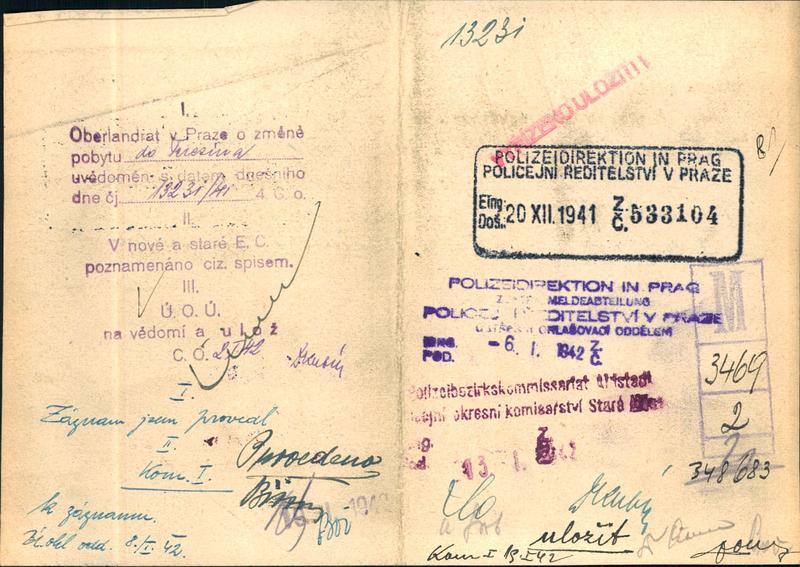 I.
Oberlandrat v Praze o změně
pobytu do Terezína
uvědoměn s datem dnešního
dne čj. 1323i/41 4. C. o.
II.
V nové a staré E. C.
poznamenáno ciz. spisem.
III.
Ú. O. Ú.
na vědomí a ulož
C. O.
I.
Záznam jsem provedl
II.
Kom. I.
Provedeno
k záznamu.
odd. 8./I. 42.
1323i
ULOŽITI!
8/
POLIZEIDIREKTION IN PRAG
POLICEJNÍ ŘEDITELSTVÍ V PRAZE
Eing.
Doš. 20 XII. 1941 Z. Č. 533104
POLIZEIDIREKTION IN PRAG
MELDEABTEILUNG
POLICEJNÍ ŘEDITELSTVÍ V PRAZE
OHLAŠOVACÍ ODDĚLENÍ
EING.
POD. - 6. I. 1942 Z. Č.
M
3469
2
Polizeibezirkskommissariat Altstadt
okresní komisařství Staré
13. I. 1942
348 683
uložit
Kom I 13. I. 42